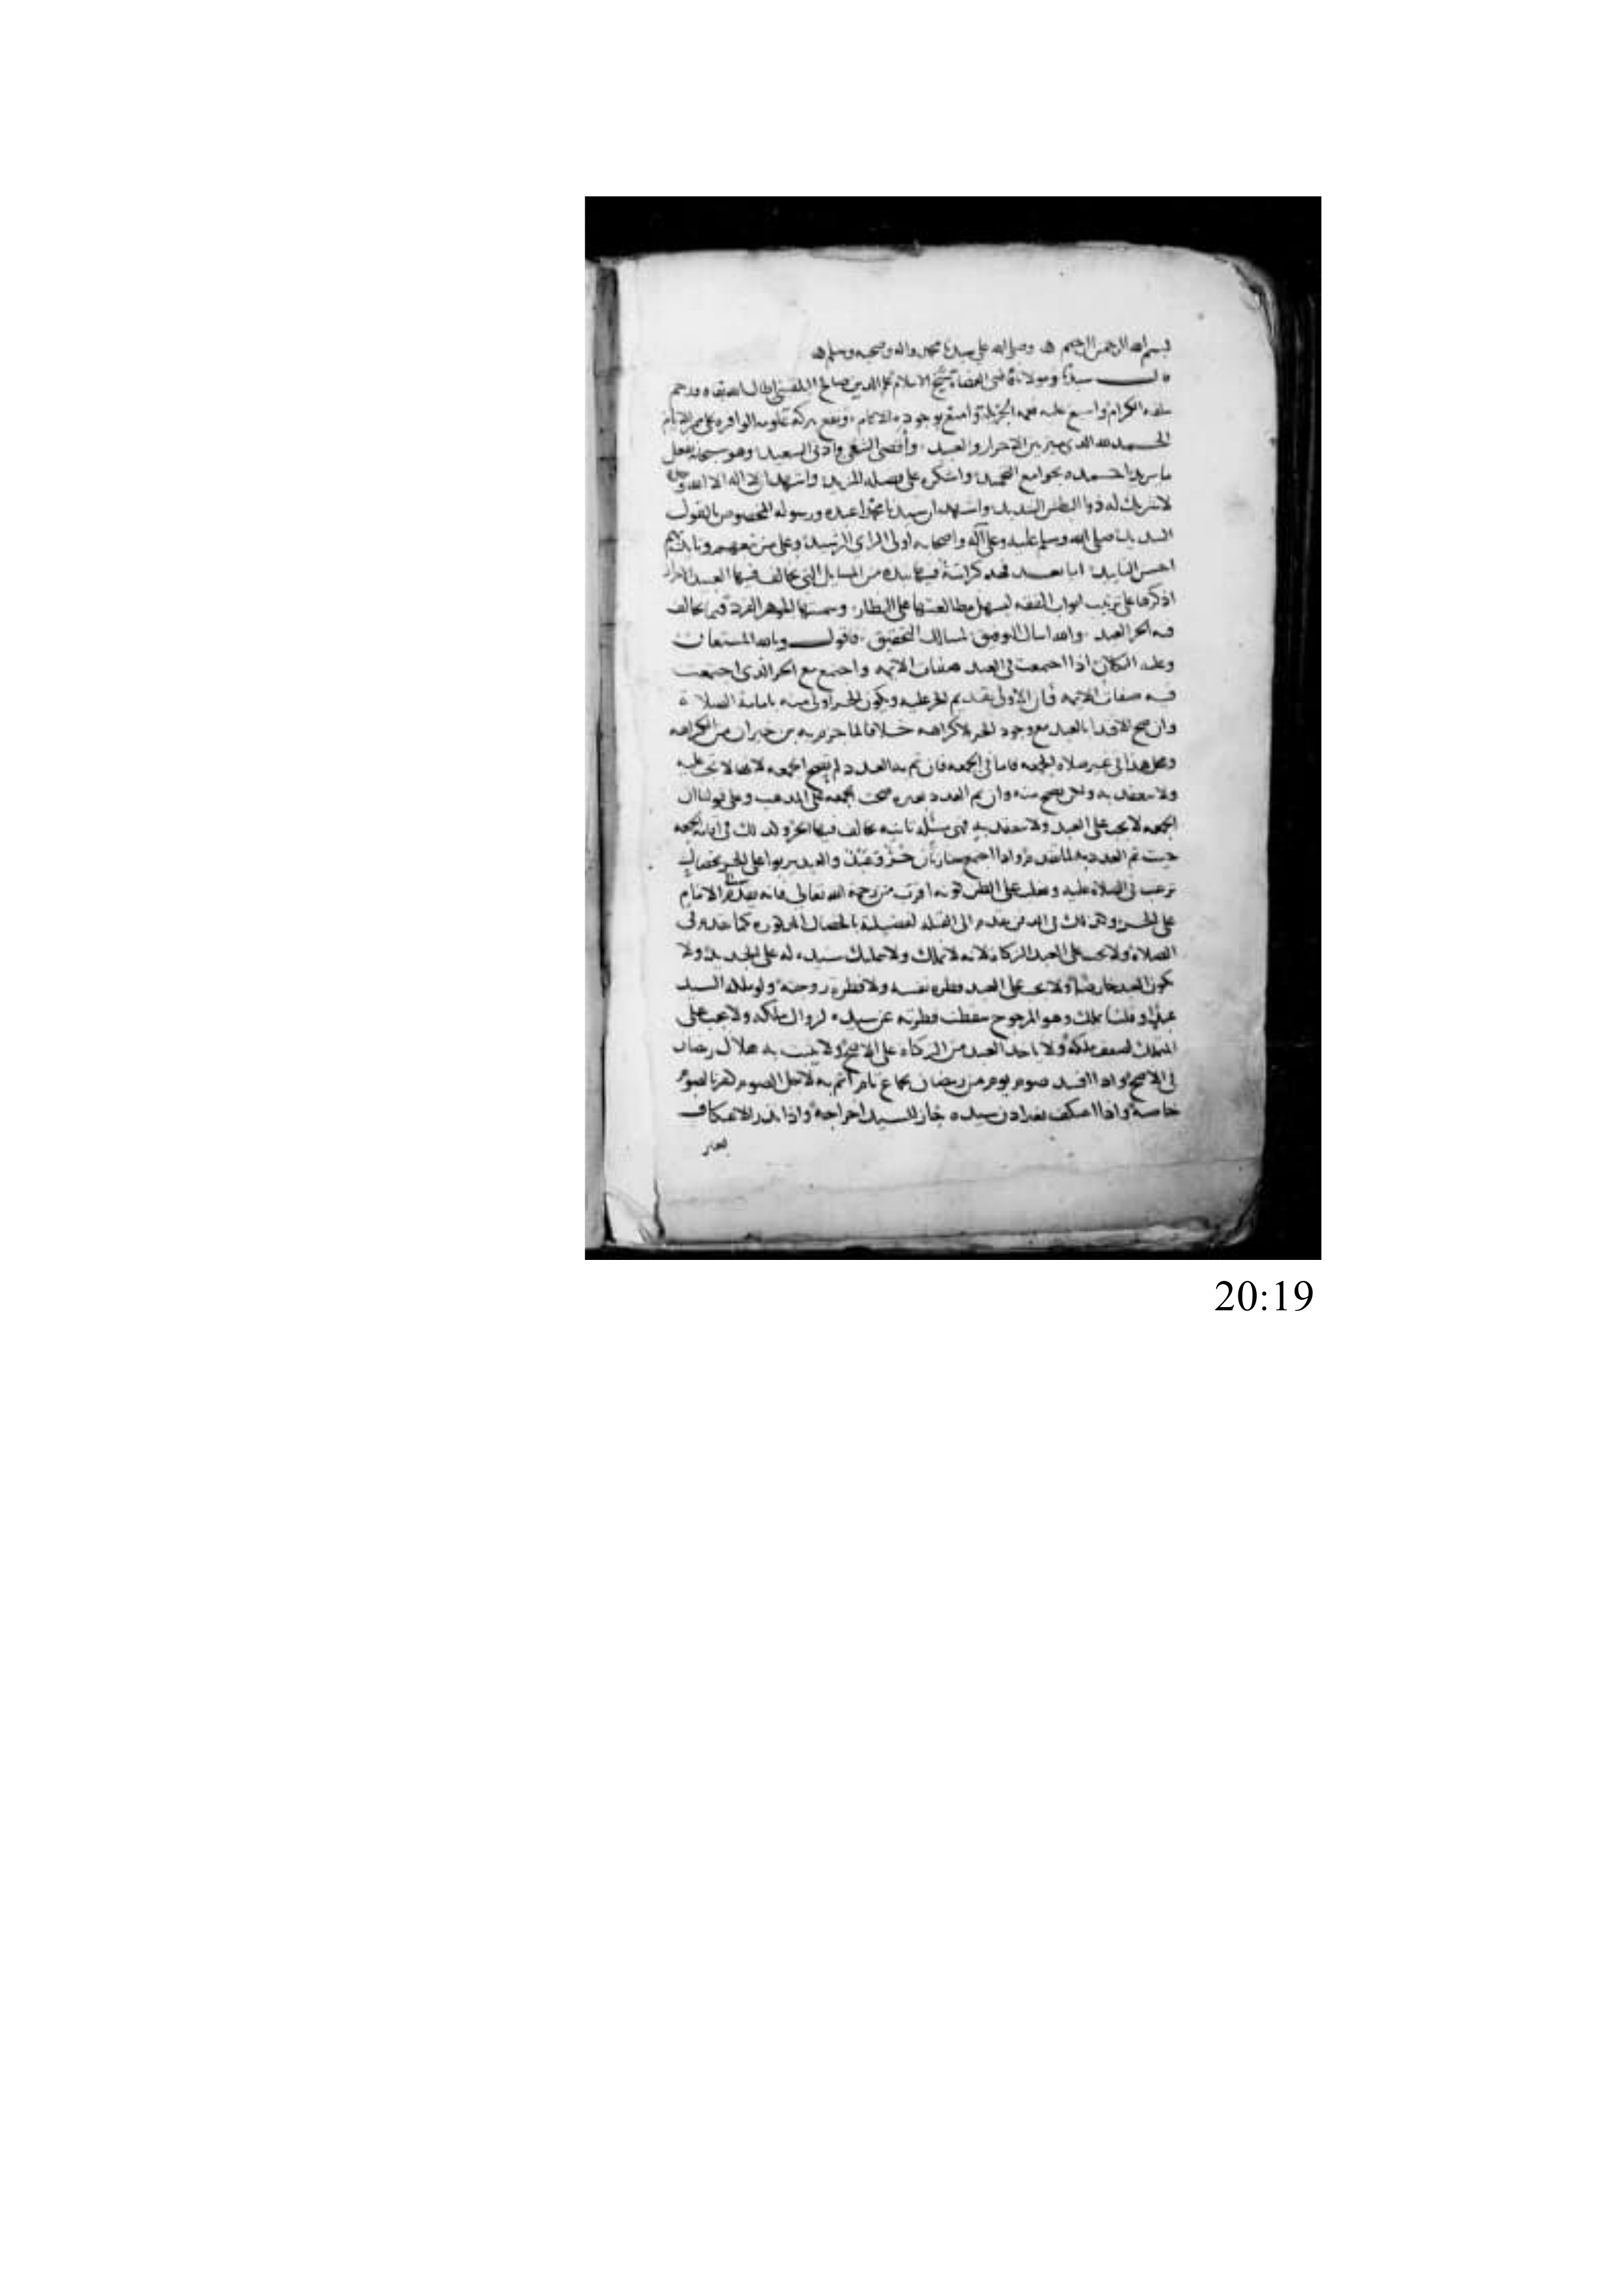 بسم الله الرحمن الرحيم وصلى الله على سيدنا محمد واله وصحبه وسلم
قال سيدنا ومولانا قاضي القضاة شيخ الاسلام علم الدين صالح البلقيني اطال الله بقاه ورحم
سلفه الكرام واسبغ عليه نعمه الجزيلة وامتع بوجوده الانام ونفع ببركة علومه الوافره على ممر الايام
الحمد لله الذي ميز بين الاحرار والعبيد وأقصى الشقي وادنى السعيد وهو سبحانه يفعل
ما يريد احمده بجوامع التحميد واشكره على فضله المزيد واشهد ان لا اله الا الله وحده
لا شريك له ذو البطش الشديد واشهد ان سيدنا محمدا عبده ورسوله المخصوص بالقول
السديد صلى الله وسلم عليه وعلى آله واصحابه اولى الراي الرشيد وعلى من تبعهم
احسن التاييد اما بعد فهذه كراسة من المسايل التي يخالف فيها العبيد الاحرار
اذكرها على ترتيب ابواب الفقه ليسهل مطالعتها على النظار وسميتها الجوهر الفرد فيما يخالف
فيه الحر العبد والله اسال التوفيق لمسالك التحقيق فاقول وبالله المستعان
وعليه التكلان اذا اجتمعت في العبد صفات الائمه واجتمع مع الحر الذي اجتمعت
فيه صفات الائمه فان الاولى تقديم الحر عليه ويكون الحر اولى منه بامامة الصلاة
وان صح الاقتدا بالعبد مع وجود الحر بلا كراهه خلافا لما جزم به بن خيران من الكراهه
ومحل هذا في غير صلاه الجمعه فاما في الجمعه فان تم به العدد لم تصح الجمعه لانها لا تجب عليه
ولا تنعقد به ولكن تصح منه وان تم العدد بغيره صحت الجمعه على المذهب وعلى قولنا ان
الجمعه لا تجب على العبد ولا تنعقد به فهي مسئلة ثانيه يخالف فيها الحر وكذلك في امامة الجمعه
حيث تم العدد به لما تقدم واذا اجتمع جنازتان حر وعبد والعبد يربوا على الحر بخصال
ترغب في الصلاة عليه ويغلب على الظن كونه اقرب من رحمة الله تعالى فانه يقدم الى الامام
على الحر وكذلك في الدفن يقدم الى القبله لفضيلته بالخصال المذكوره كما تقدم في
الصلاة ولا تجب على العبد الزكاة لانه لا يملك ولا بتمليك سيده له على الجديد ولا
يكون العبد خارصا ولا يجب على العبد فطرة نفسه ولا فطرة زوجته ولو ملكه السيد
عبدا وقلنا يملك وهو المرجوح سقطت فطرته عن سيده لزوال ملكه ولا تجب على
المتملك لضعف ملكه ولا ياخذ العبد من الزكاة على الاصح ولا يثبت به هلال رمضان
في الاصح واذا افسد صوم يوم من رمضان بجماع تام اثم به لاجل الصوم كفر بالصوم
خاصة واذا اعتكف بغير اذن سيده جاز للسيد اخراجه واذا نذر الاعتكاف
بغير
20:19